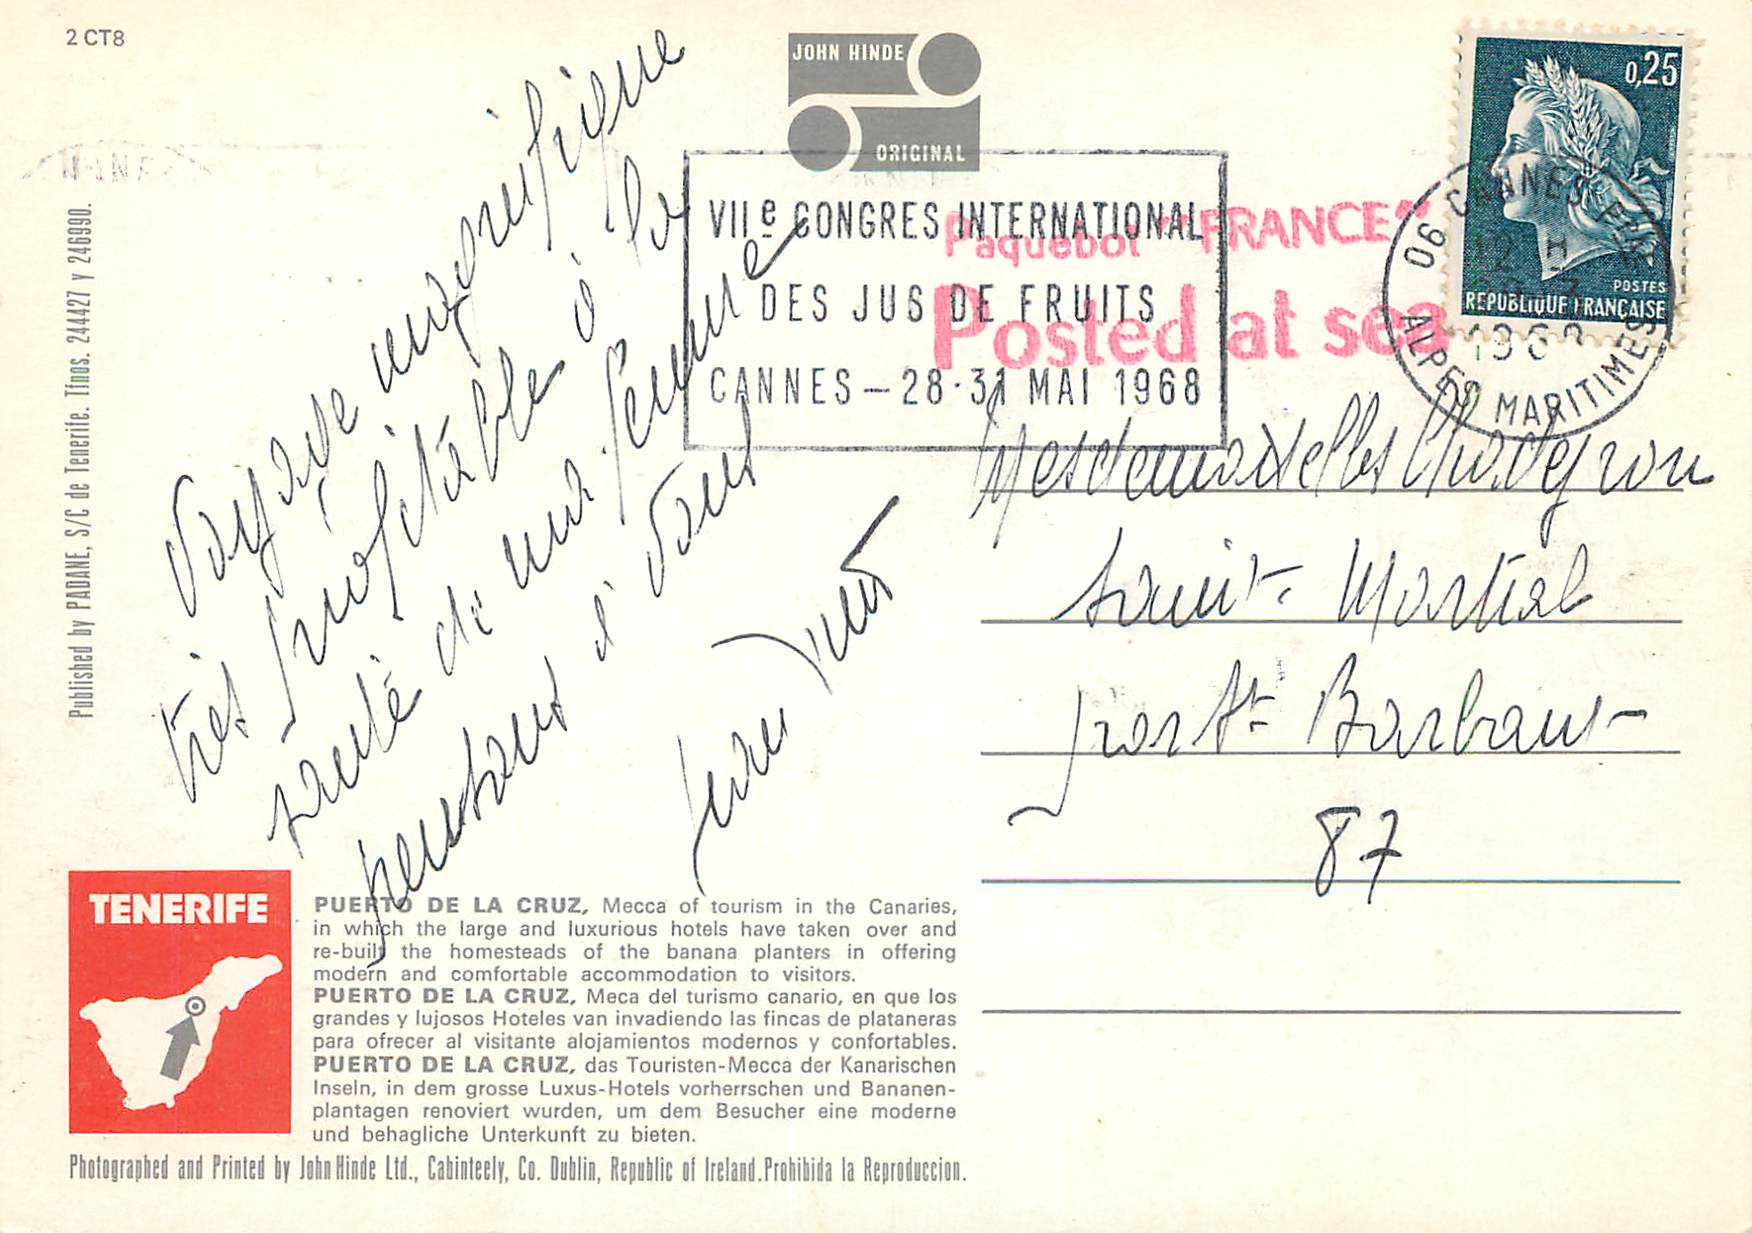 2 CT8
JOHN HINDE
ORIGINAL
0,25
POSTES
REPUBLIQUE FRANÇAISE
06 CANNES
12 H
1968
ALPES MARITIMES
VIIe CONGRES INTERNATIONAL
DES JUS DE FRUITS
CANNES – 28·31 MAI 1968
Paquebot "FRANCE"
Posted at sea
Voyage magnifique
très profitable à la
santé de ma femme
pensons à vous
Jean
Mesdemoiselles Chadeyron
Saint-Martial
par St Barbant
87
Published by PADANE, S/C de Tenerife. Tfnos. 244427 y 246990.
TENERIFE
PUERTO DE LA CRUZ, Mecca of tourism in the Canaries,
in which the large and luxurious hotels have taken over and
re-built the homesteads of the banana planters in offering
modern and comfortable accommodation to visitors.
PUERTO DE LA CRUZ, Meca del turismo canario, en que los
grandes y lujosos Hoteles van invadiendo las fincas de plataneras
para ofrecer al visitante alojamientos modernos y confortables.
PUERTO DE LA CRUZ, das Touristen-Mecca der Kanarischen
Inseln, in dem grosse Luxus-Hotels vorherrschen und Bananen-
plantagen renoviert wurden, um dem Besucher eine moderne
und behagliche Unterkunft zu bieten.
Photographed and Printed by John Hinde Ltd., Cabinteely, Co. Dublin, Republic of Ireland. Prohibida la Reproduccion.